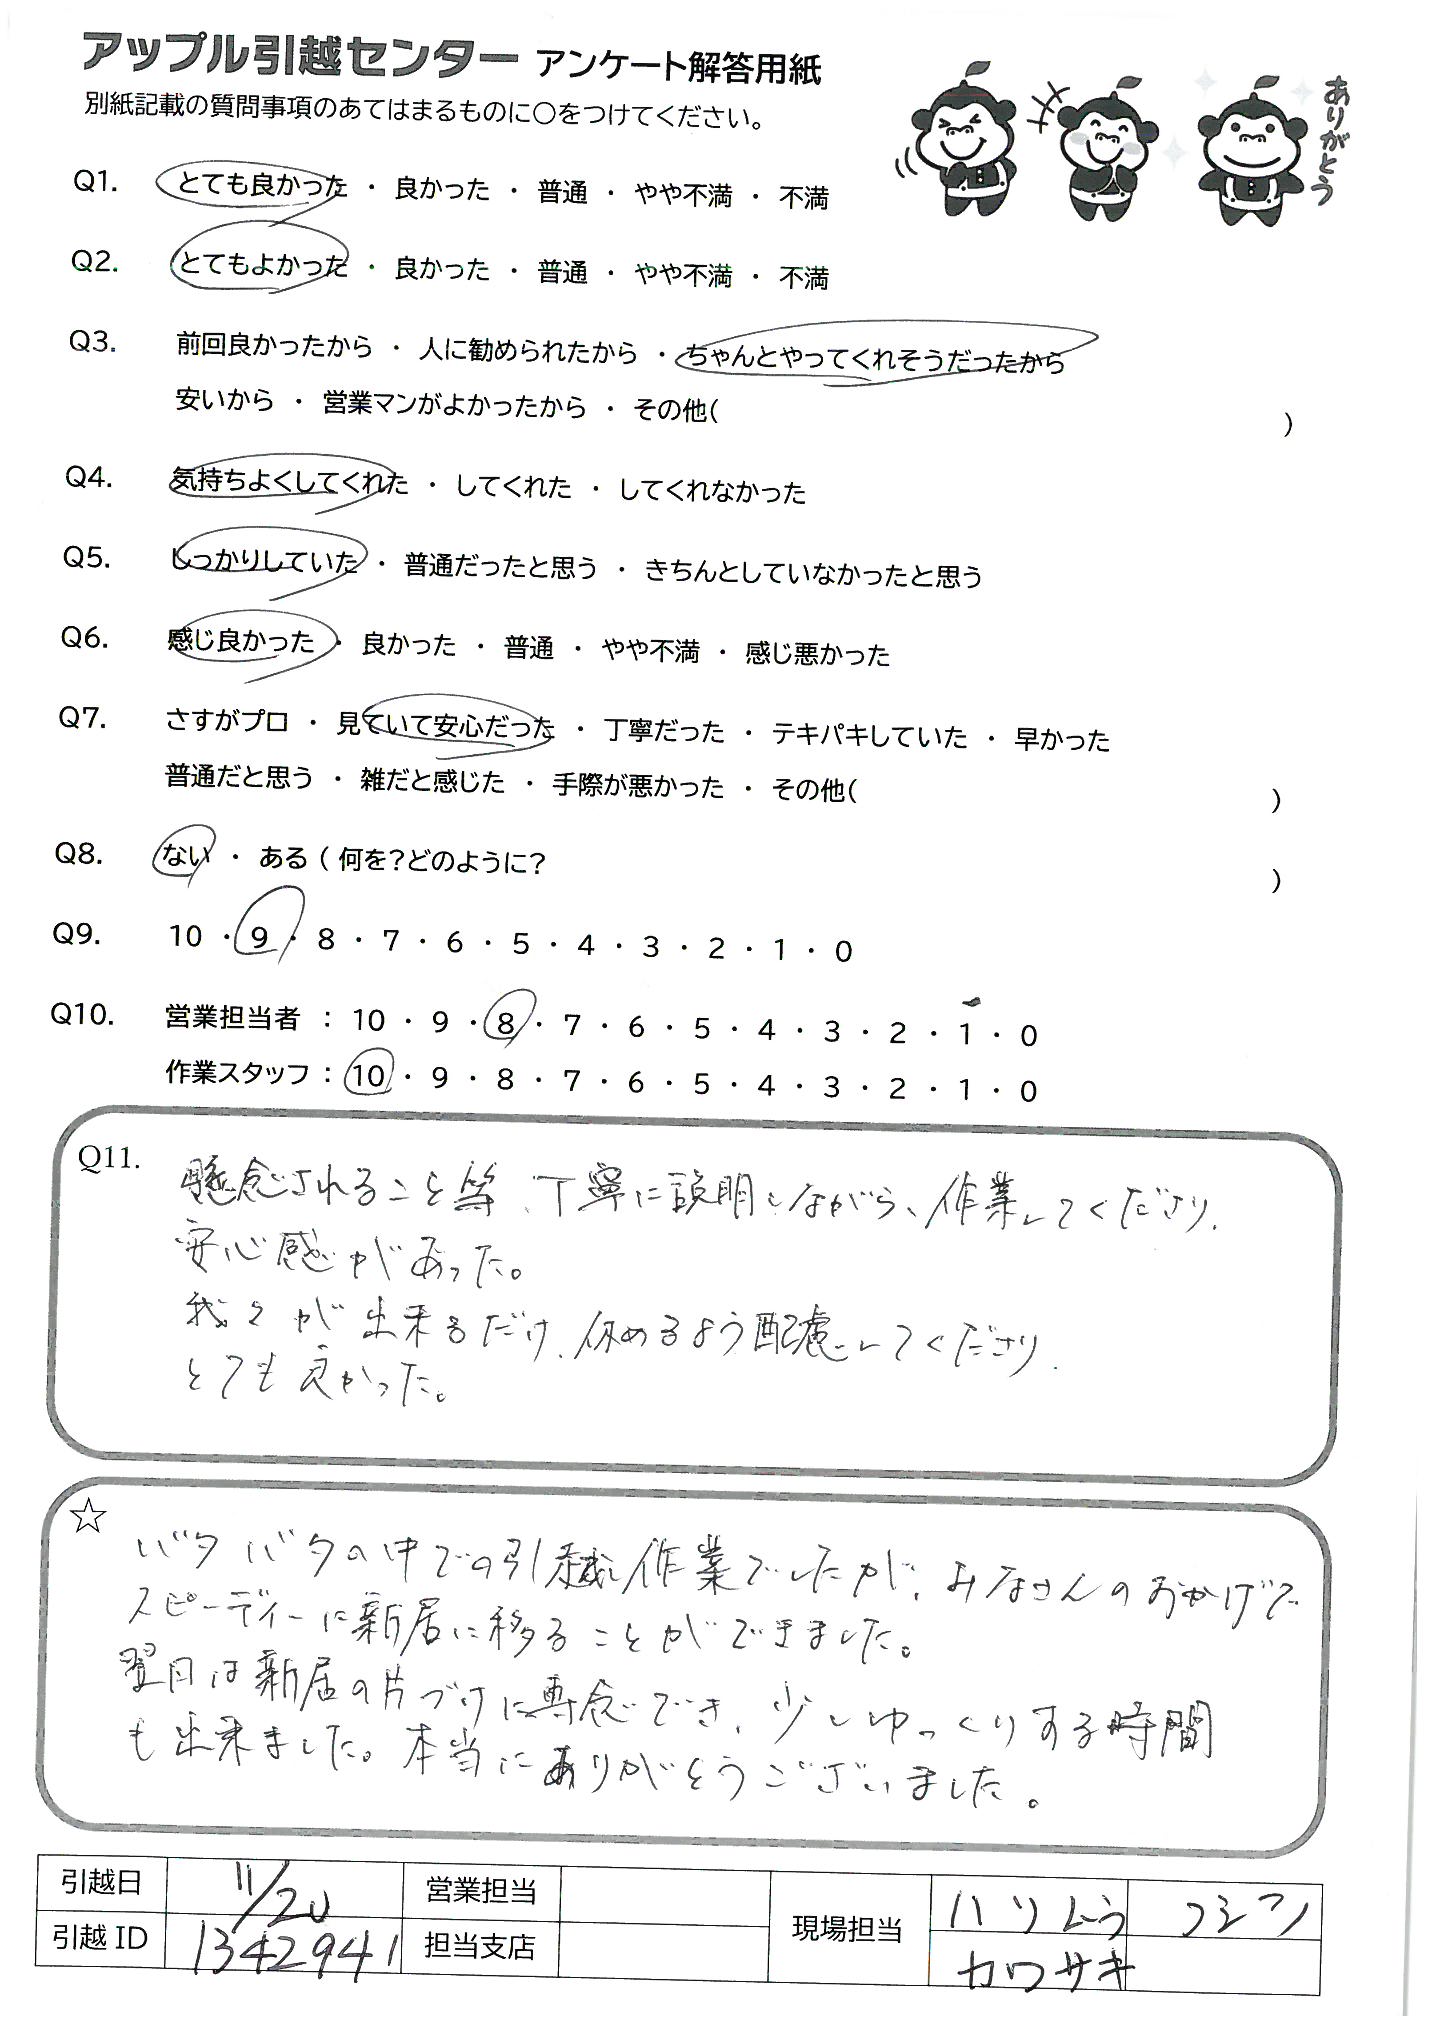 アップル引越センター アンケート解答用紙
別紙記載の質問事項のあてはまるものに○をつけてください。
ありがとう
Q1. とても良かった ・ 良かった ・ 普通 ・ やや不満 ・ 不満
Q2. とてもよかった ・ 良かった ・ 普通 ・ やや不満 ・ 不満
Q3. 前回良かったから ・ 人に勧められたから ・ ちゃんとやってくれそうだったから
安いから ・ 営業マンがよかったから ・ その他( )
Q4. 気持ちよくしてくれた ・ してくれた ・ してくれなかった
Q5. しっかりしていた ・ 普通だったと思う ・ きちんとしていなかったと思う
Q6. 感じ良かった ・ 良かった ・ 普通 ・ やや不満 ・ 感じ悪かった
Q7. さすがプロ ・ 見ていて安心だった ・ 丁寧だった ・ テキパキしていた ・ 早かった
普通だと思う ・ 雑だと感じた ・ 手際が悪かった ・ その他( )
Q8. ない ・ ある ( 何を?どのように? )
Q9. 10 ・ 9 ・ 8 ・ 7 ・ 6 ・ 5 ・ 4 ・ 3 ・ 2 ・ 1 ・ 0
Q10. 営業担当者 : 10 ・ 9 ・ 8 ・ 7 ・ 6 ・ 5 ・ 4 ・ 3 ・ 2 ・ 1 ・ 0
作業スタッフ : 10 ・ 9 ・ 8 ・ 7 ・ 6 ・ 5 ・ 4 ・ 3 ・ 2 ・ 1 ・ 0
Q11. 懸念されること等、丁寧に説明しながら、作業してくださり、
安心感があった。
我々が出来るだけ、休めるよう配慮してくださり、
とても良かった。
☆ バタバタの中での引越し作業でしたが、みなさんのおかげで
スピーディーに新居に移ることができました。
翌日は新居の片づけに専念でき、少しゆっくりする時間
も出来ました。本当にありがとうございました。
引越日 11/20 営業担当 現場担当 ハリムラ
引越ID 1342941 担当支店 カワサキ